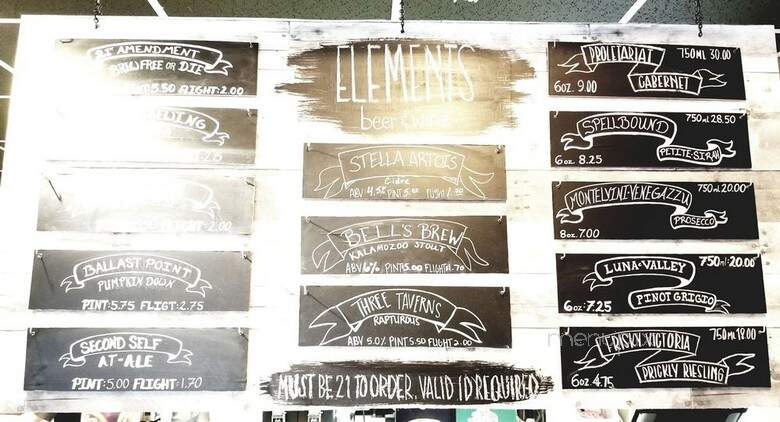 21ST AMENDMENT
BREW FREE OR DIE
PINT: 5.50 FLIGHT: 2.00
2.00
BALLAST POINT
PUMPKIN DOWN
PINT: 5.75 FLIGT: 2.75
SECOND SELF
AT-ALE
PINT: 5.00 FLIGHT: 1.70
ELEMENTS
beer & wine
STELLA ARTOIS
Cidre
ABV 4.5%
BELL'S BREW
KALAMOZOO STOUT
ABV 6% PINT 5.00 FLIGHT 1.70
THREE TAVERNS
RAPTUROUS
ABV 5.0% PINT 5.50 FLIGHT 2.00
MUST BE 21 TO ORDER. VALID ID REQUIRED
PROLETARIAT 750 ML 30.00
CABERNET
6oz. 9.00
SPELLBOUND 750 ml 28.50
PETITE-SIRAH
6oz 8.25
MONTELVINI-VENEGAZZU 750ml 20.00
PROSECCO
8oz 7.00
LUNA-VALLEY 750ml 20.00
PINOT GRIGIO
6oz 7.25
FRISKY VICTORIA 750ml 18.00
PRICKLY RIESLING
6oz 4.75